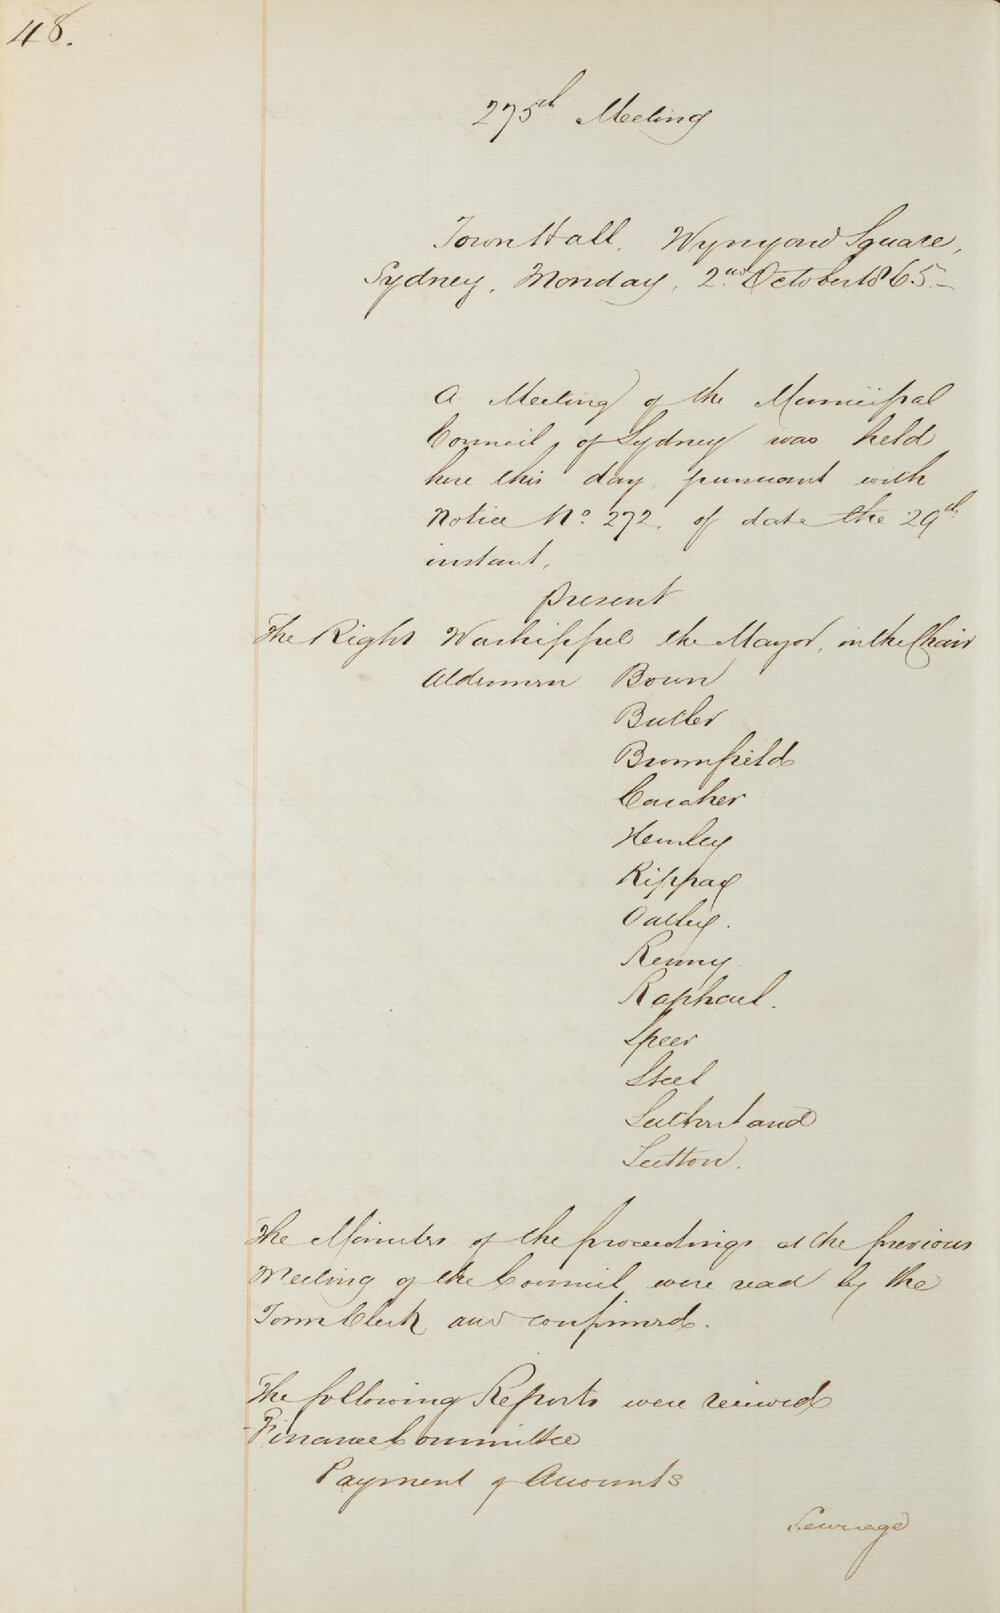 48.
275th Meeting
Town Hall, Wynyard Square,
Sydney, Monday, 2nd October 1865.
A Meeting of the Municipal
Council of Sydney was held
here this day pursuant with
Notice No. 272. of date the 29th
instant.
present
The Right Worshipful the Mayor, in the Chair
Aldermen Bown
Butler
Brownfield
Caraher
Hemley
Rippax
Oatley.
Renny
Raphael.
Speer
Steel
Sutherland
Sutton.
The Minutes of the proceedings at the previous
Meeting of the Council were read by the
Town Clerk and confirmed.
The following Reports were received
Finance Committee
Payment of Accounts
Sewerage